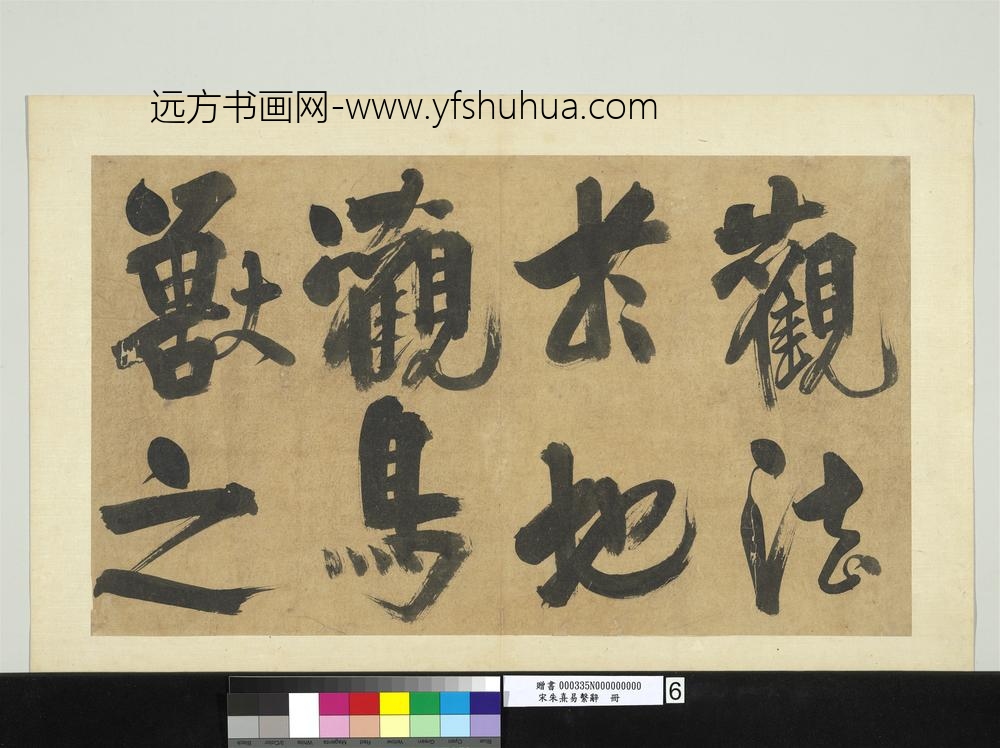 远方书画网-www.yfshuhua.com
觀法
於地
觀鳥
獸之
贈書 000335N000000000
宋朱熹易繫辭 冊
6
Blue Cyan Green Yellow Red Magenta White 3/Color Black